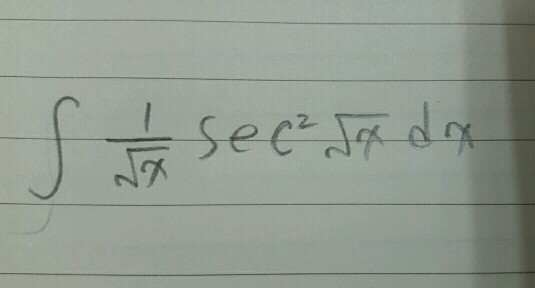 ∫ 1/√x sec² √x dx